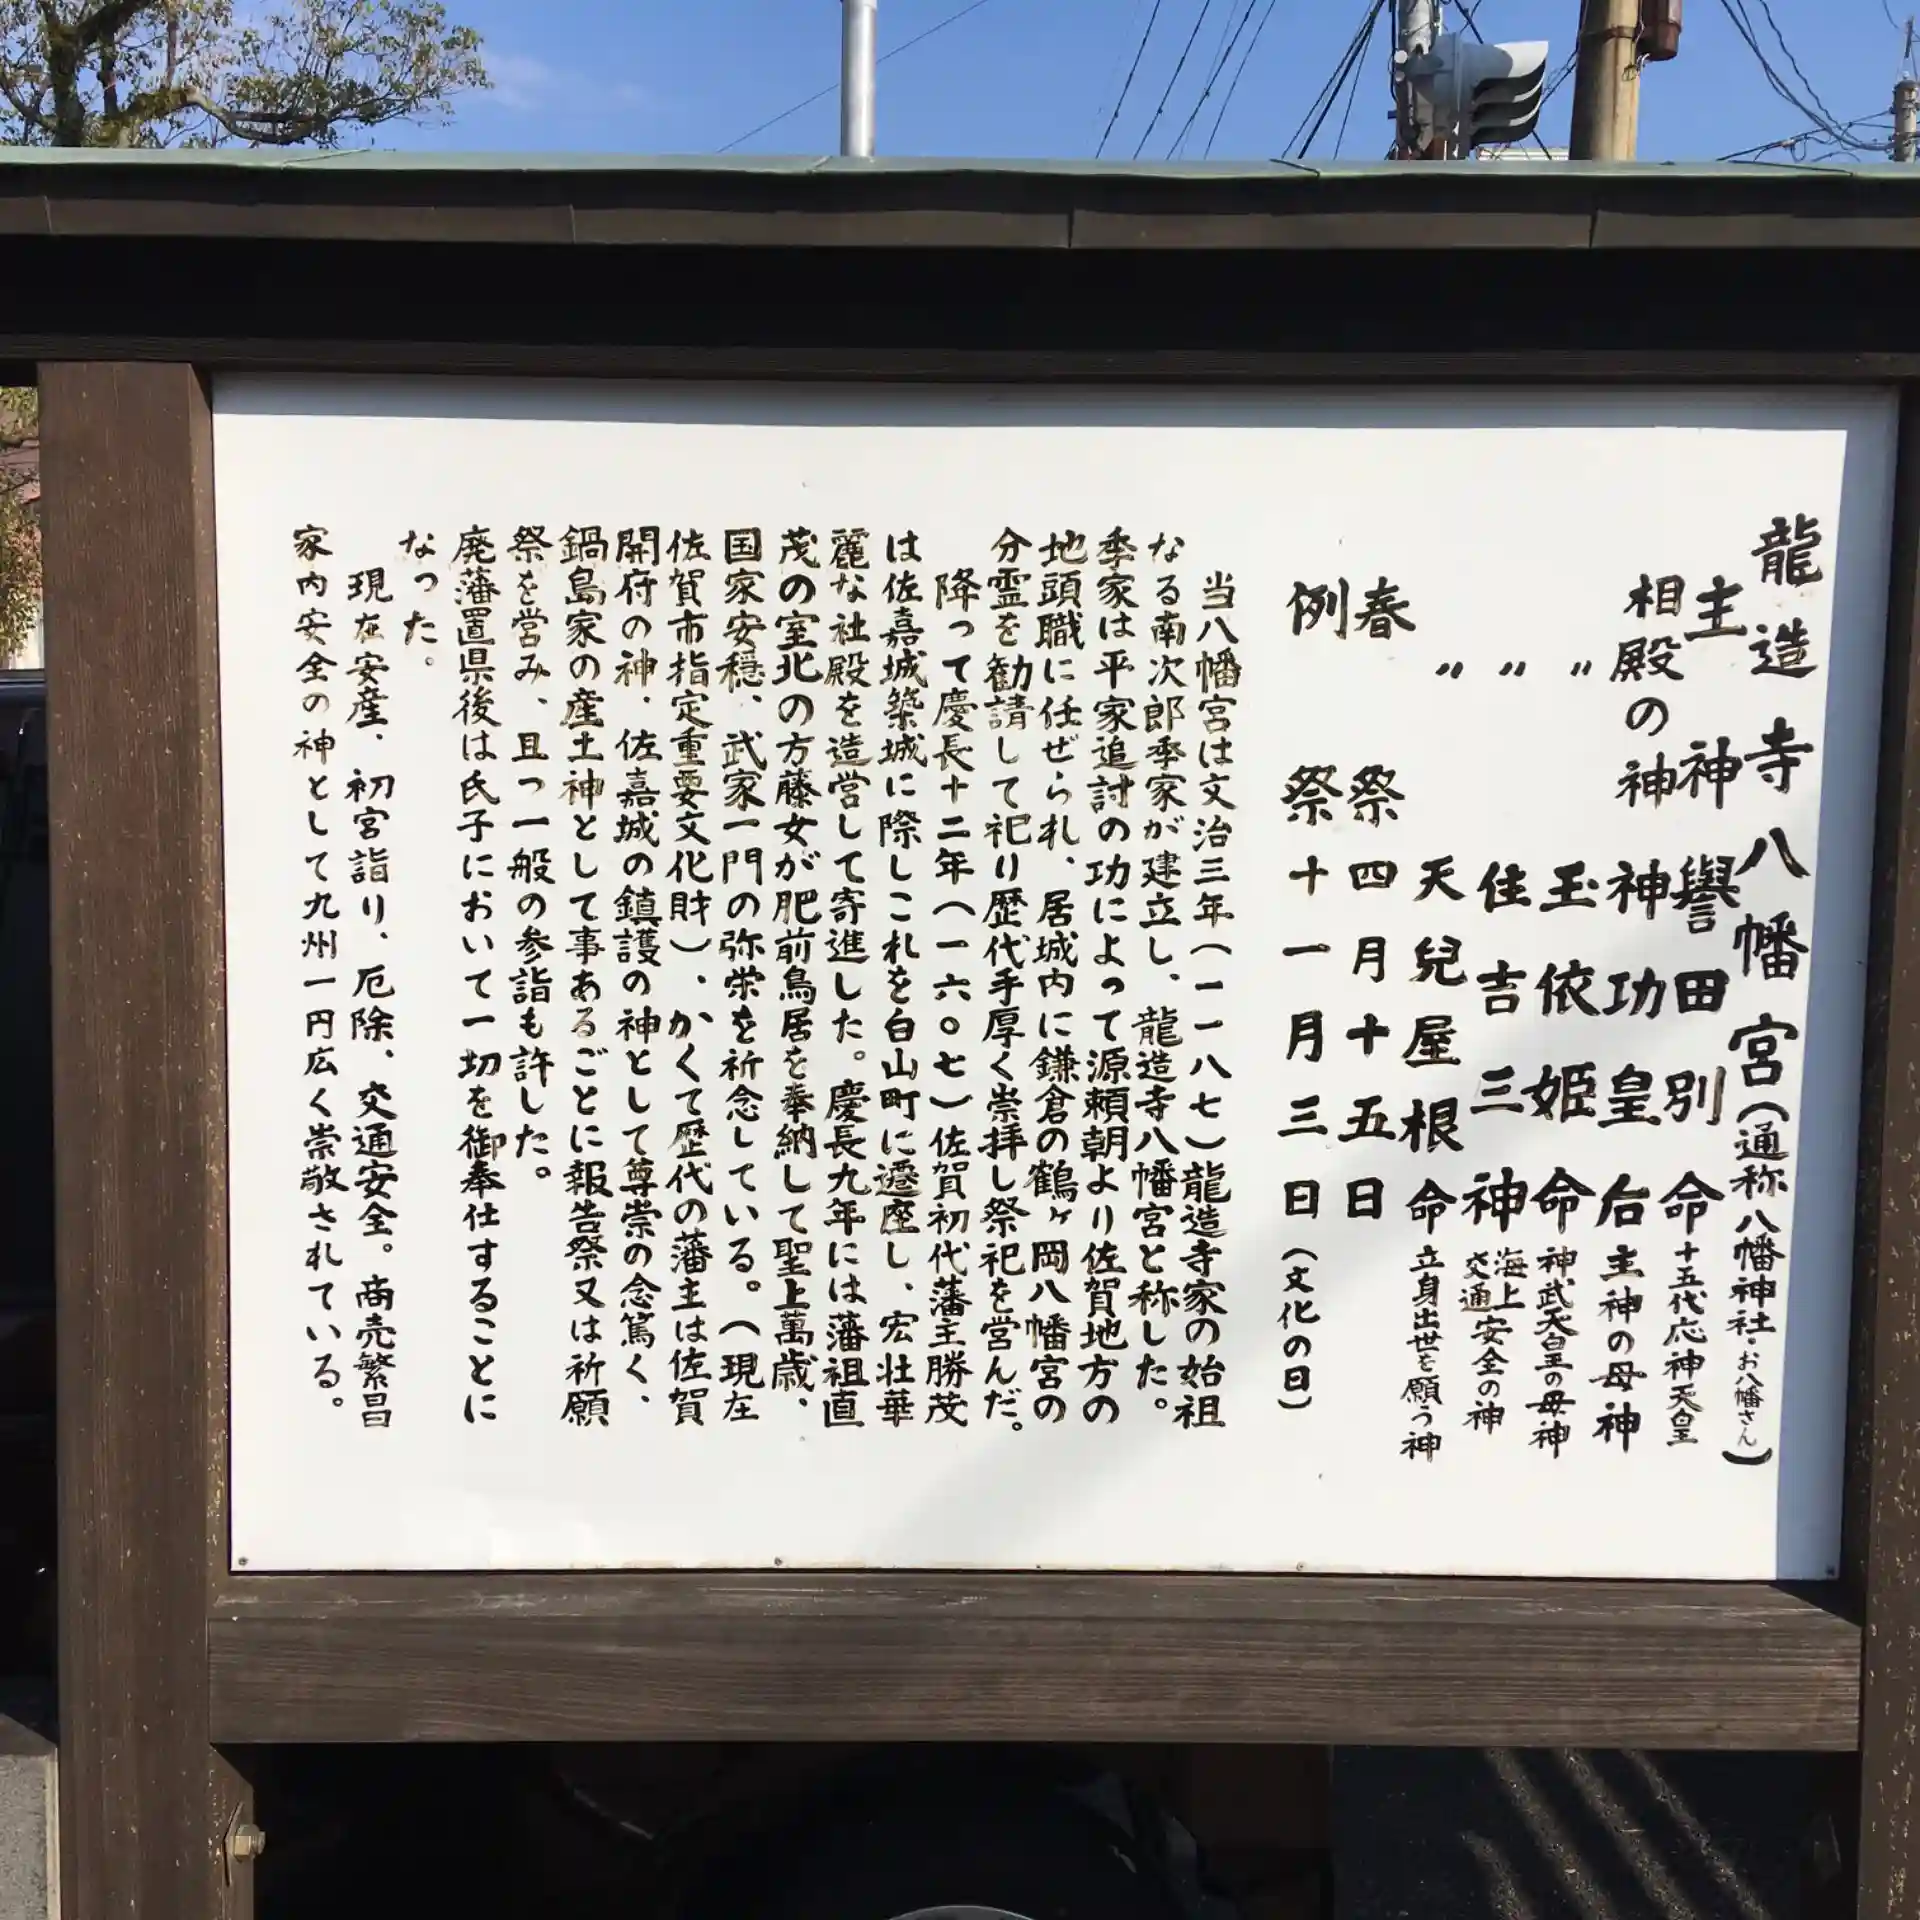 龍造寺八幡宮(通称八幡神社・お八幡さん)
主神 譽田別命 十五代応神天皇
相殿の神 神功皇后 主神の母神
〃 玉依姫命 神武天皇の母神
〃 住吉三神 海上交通安全の神
〃 天兒屋根命 立身出世を願う神
春祭 四月十五日
例祭 十一月三日(文化の日)
当八幡宮は文治三年(一一八七)龍造寺家の始祖
なる南次郎季家が建立し、龍造寺八幡宮と称した。
季家は平家追討の功によって源頼朝より佐賀地方の
地頭職に任ぜられ、居城内に鎌倉の鶴ヶ岡八幡宮の
分霊を勧請して祀り歴代手厚く崇拝し祭祀を営んだ。
降って慶長十二年(一六〇七)佐賀初代藩主勝茂
は佐嘉城築城に際しこれを白山町に遷座し、宏壮華
麗な社殿を造営して寄進した。慶長九年には藩祖直
茂の室北の方藤女が肥前鳥居を奉納して聖上萬歳、
国家安穏、武家一門の弥栄を祈念している。(現在
佐賀市指定重要文化財)、かくて歴代の藩主は佐賀
開府の神、佐嘉城の鎮護の神として尊崇の念篤く、
鍋島家の産土神として事あるごとに報告祭又は祈願
祭を営み、且つ一般の参詣も許した。
廃藩置県後は氏子において一切を御奉仕することに
なった。
現在安産、初宮詣り、厄除、交通安全。商売繁昌
家内安全の神として九州一円広く崇敬されている。